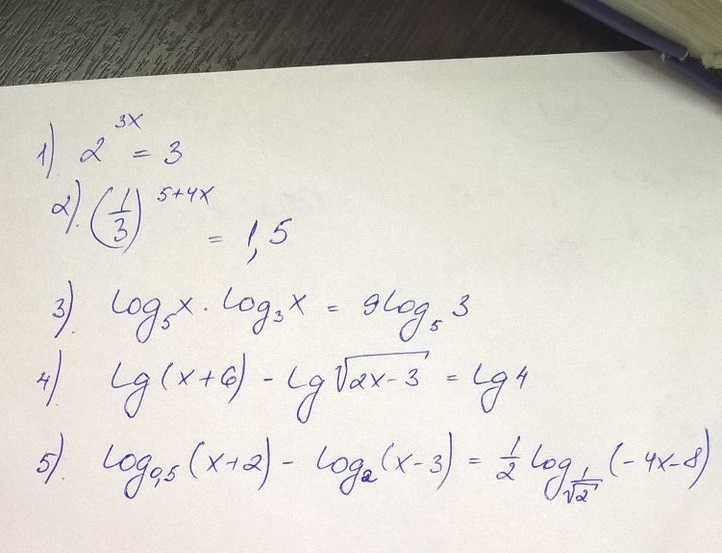 1) 2^{3x} = 3
2). (1/3)^{5+4x} = 1,5
3). log₅x · log₃x = 9log₅3
4) lg(x+6) - lg√(2x-3) = lg4
5). log₀,₅(x+2) - log₂(x-3) = 1/2 log_{1/√2}(-4x-8)